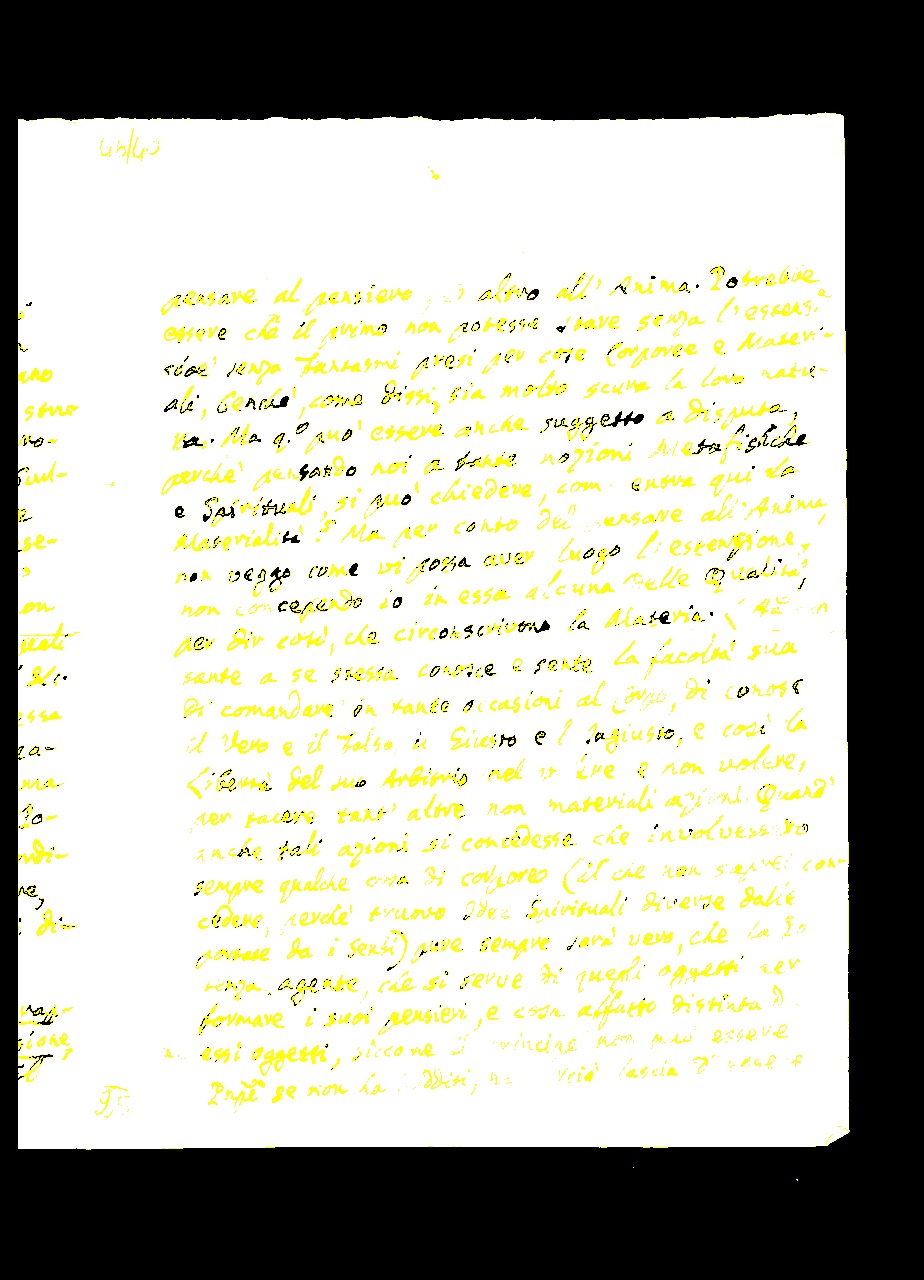 pensare al pensiero altro all' Anima. Potrebbe
essere che il primo non potesse stare senza l'essens.e
cioè senza fantasmi presi per cose Corporee e Materi-
ali, benché, come dissi, sia molto scura la loro natu-
ra. Ma q.o può essere anche suggetto a disputa,
perché pensando noi a tante nozioni Metafisiche
e Spirituali, si può chiedere, come entra qui la
Materialità? Ma per conto del pensare all'Anima,
non veggo come vi possa aver luogo l'estensione,
non concependo io in essa alcuna delle Qualità,
per dir così, che circonscrivono la Materia.
sante a se stessa conosce e sente la facoltà sua
di comandare in tante occasioni al Corpo, di conosc
il Vero e il Falso, il Giusto e l'Ingiusto, e così la
Libertà del suo Arbitrio nel volere e non volere,
per tacere tant' altre non materiali azioni. Quand'
anche tali azioni si concedesse che involvessero
sempre qualche cosa di corporeo (il che non saprei con-
cedere, perché truovo Idee Spirituali diverse dalle
portate da i Sensi) pure sempre sarà vero, che la Po
tenza agente, che si serve di quegli oggetti per
formare i suoi pensieri, è cosa affatto distinta d
essi oggetti, siccome il Principe non può essere
Pnpe se non ha Sudditi, lascia d'essere
ano
vo-
se-
on
essa
ma
ndi-
re,
di-
rap-
sione